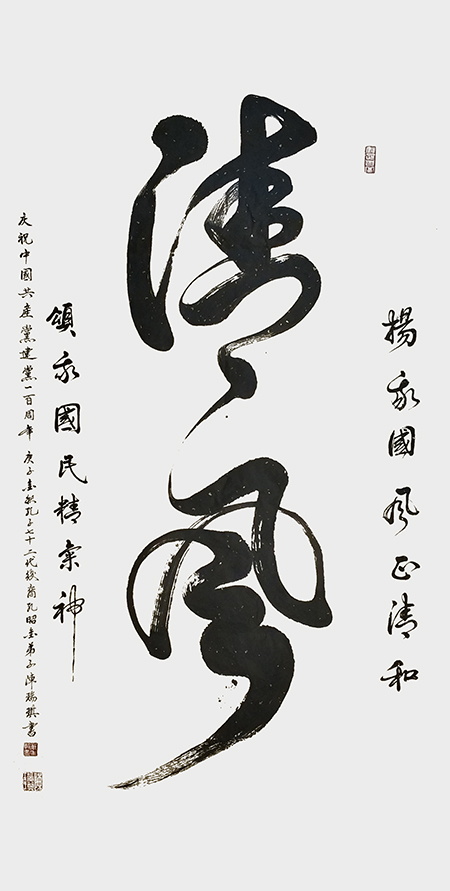 揚我國風正清和
清風
頌我國民精氣神
庆祝中國共產黨建黨一百周年 庚子春秋孔子七十二代後裔孔昭春弟子陳瑞琪書